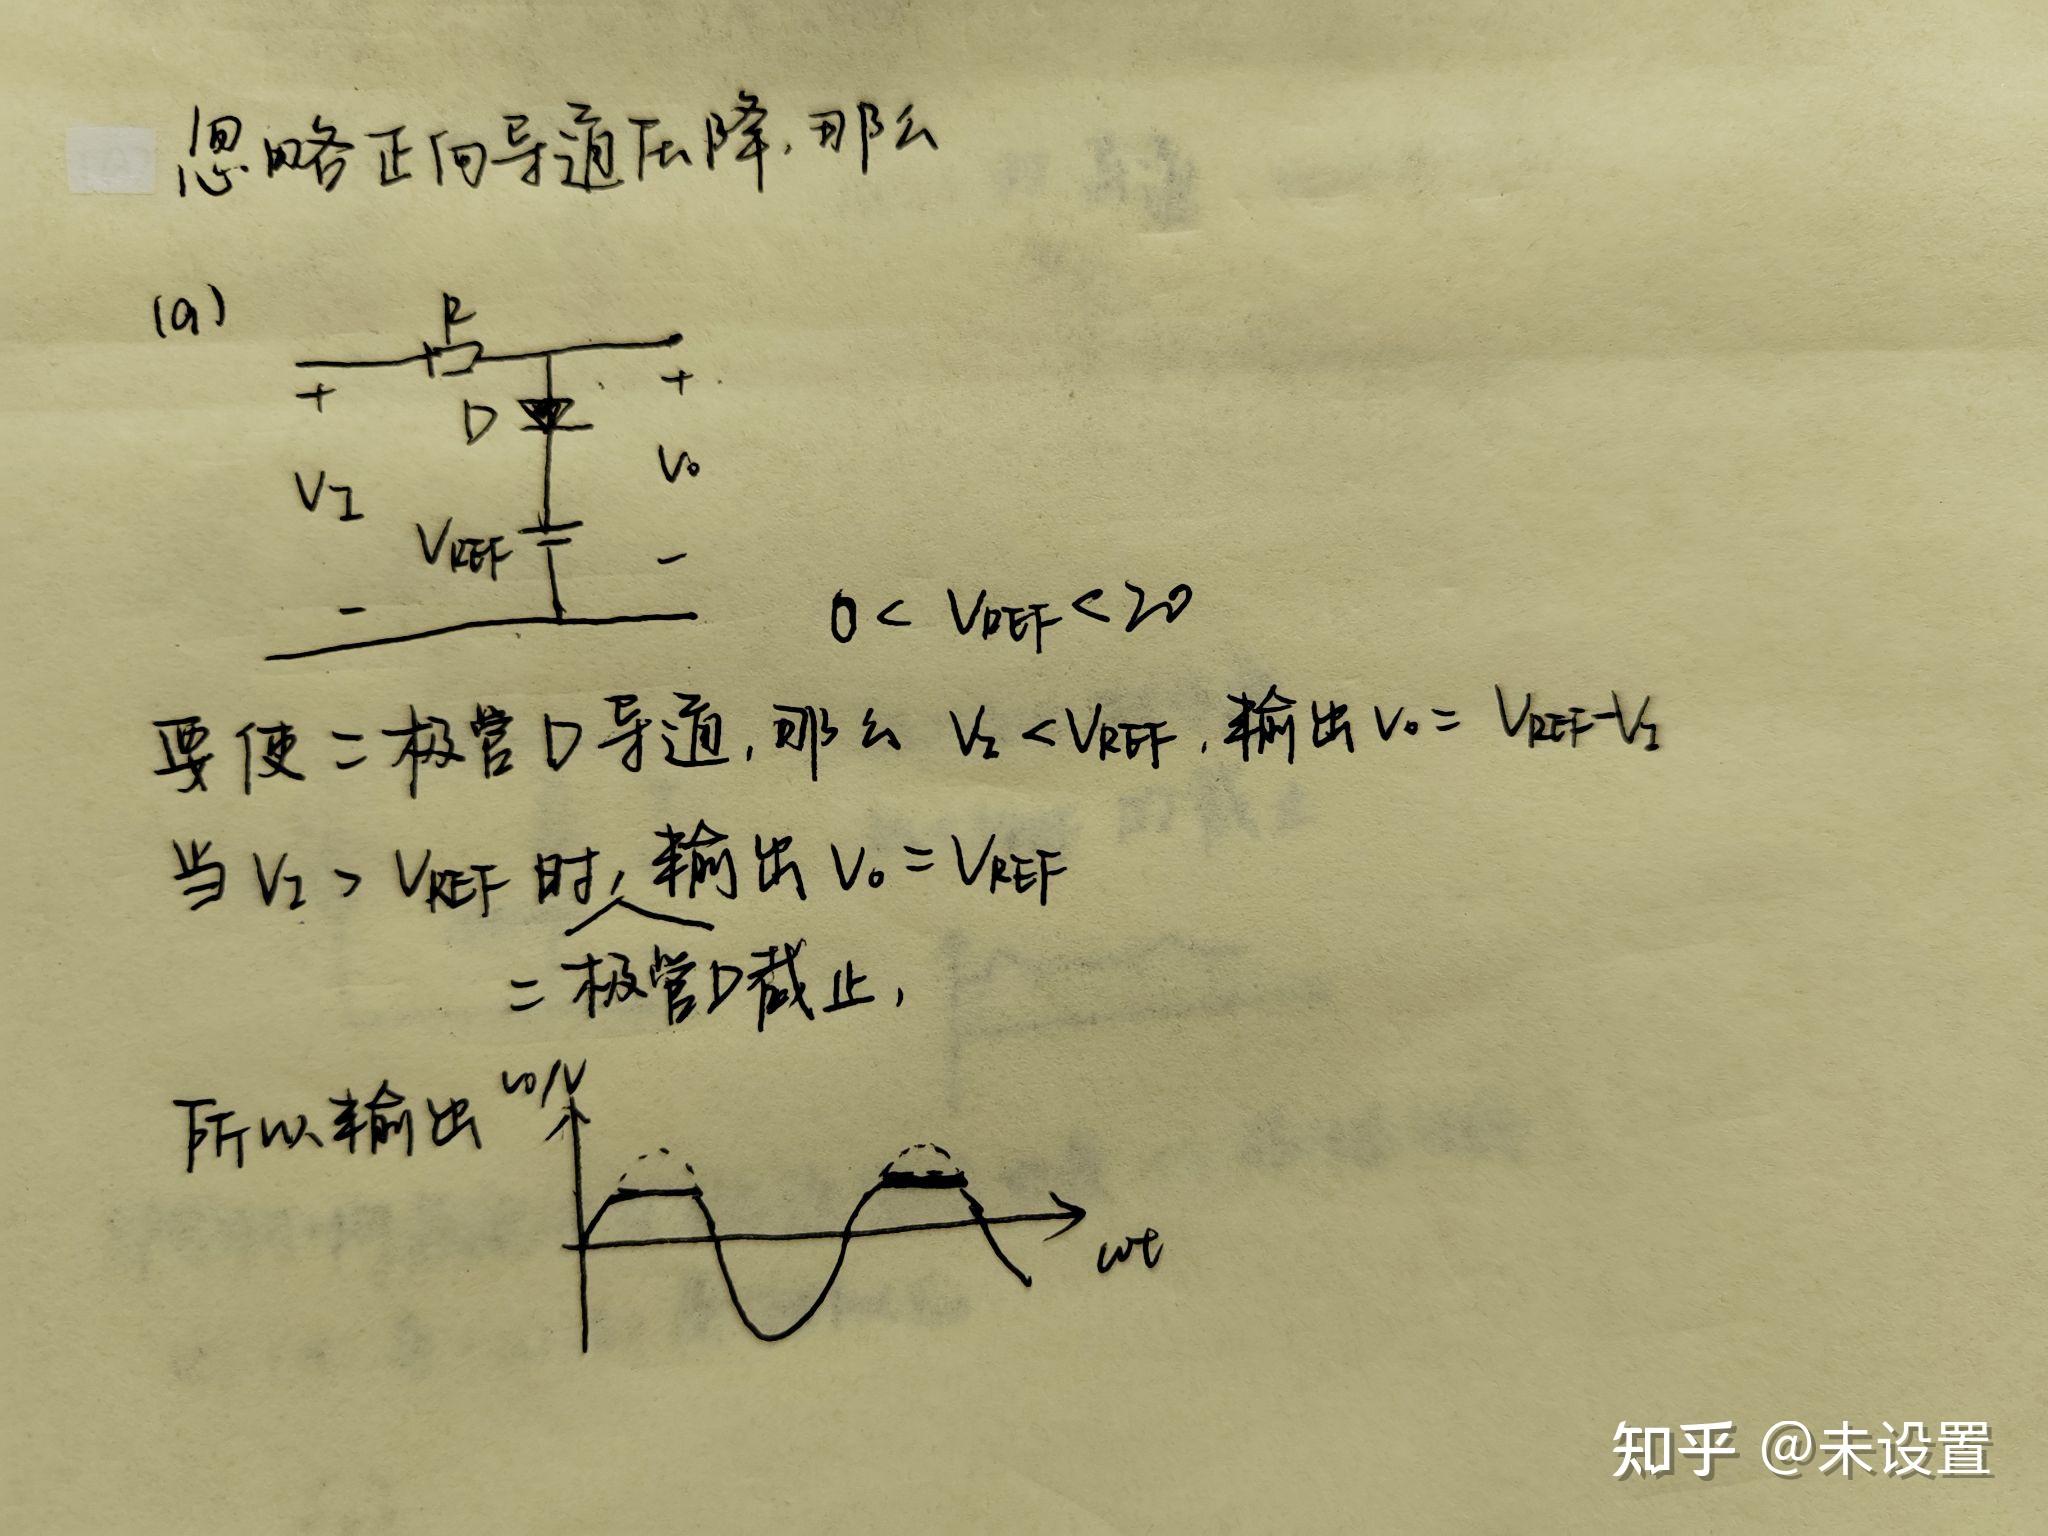 忽略正向导通压降,那么
(a)
R
+
D
+
VI
Vo
VREF
-
-
0 < VREF < 20
要使二极管D导通,那么 VI < VREF,输出 Vo = VREF-VI
当 VI > VREF 时,输出 Vo = VREF
二极管D截止,
所以输出
vo/V
wt
知乎 @未设置